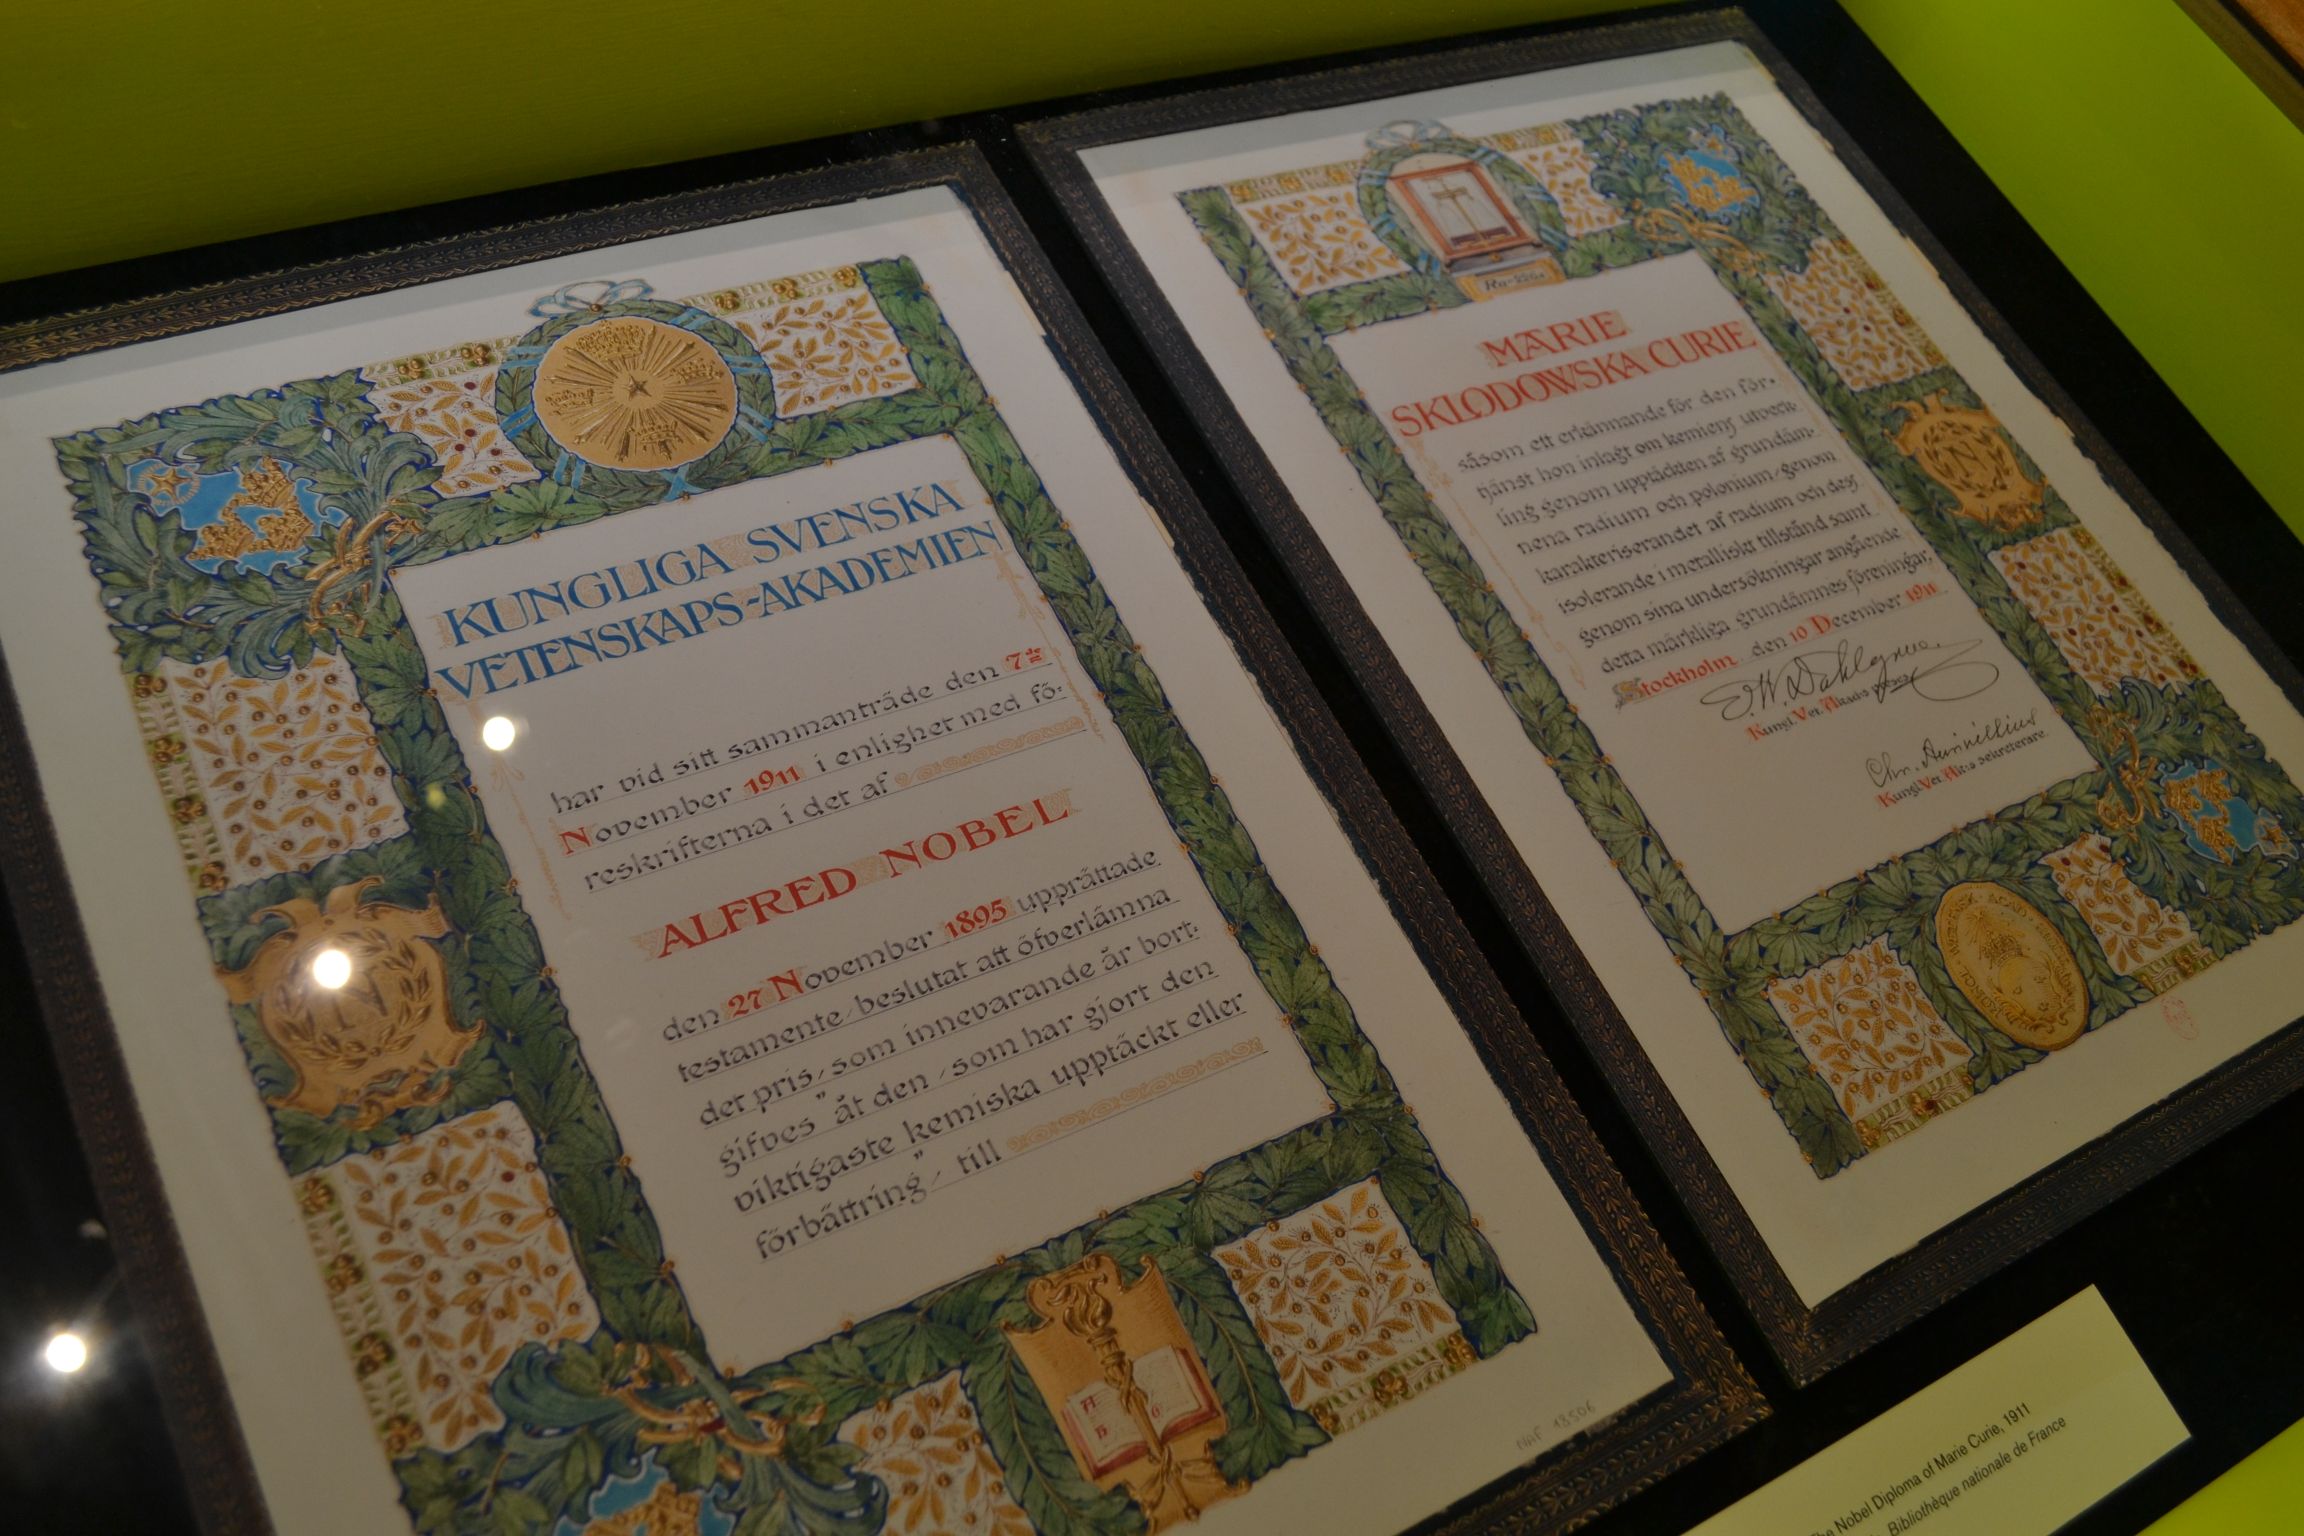 KUNGLIGA SVENSKA
VETENSKAPS-AKADEMIEN
har vid sitt sammanträde den 7de
November 1911 i enlighet med fö-
reskrifterna i det af
ALFRED NOBEL
den 27 November 1895 upprättade
testamente, beslutat att öfverlämna
det pris, som innevarande år bort-
gifves "åt den, som har gjort den
viktigaste kemiska upptäckt eller
förbättring", till
N
A
B
NAF 18506
Ra=226,4
MARIE
SKLODOWSKA CURIE
såsom ett erkännande för den för-
tjänst hon inlagt om kemiens utveck-
ling genom upptäckten af grundäm-
nena radium och polonium, genom
karakteriserandet af radium och dess
isolerande i metalliskt tillstånd samt
genom sina undersökningar angående
detta märkliga grundämnes föreningar,
Stockholm den 10 December 1911
E.W. Dahlgren.
Kungl. Vet. Akad:s preses
Chr. Aurivillius
Kungl. Vet. Ak:s sekreterare.
N
ACAD.
The Nobel Diploma of Marie Curie, 1911
Bibliothèque nationale de France